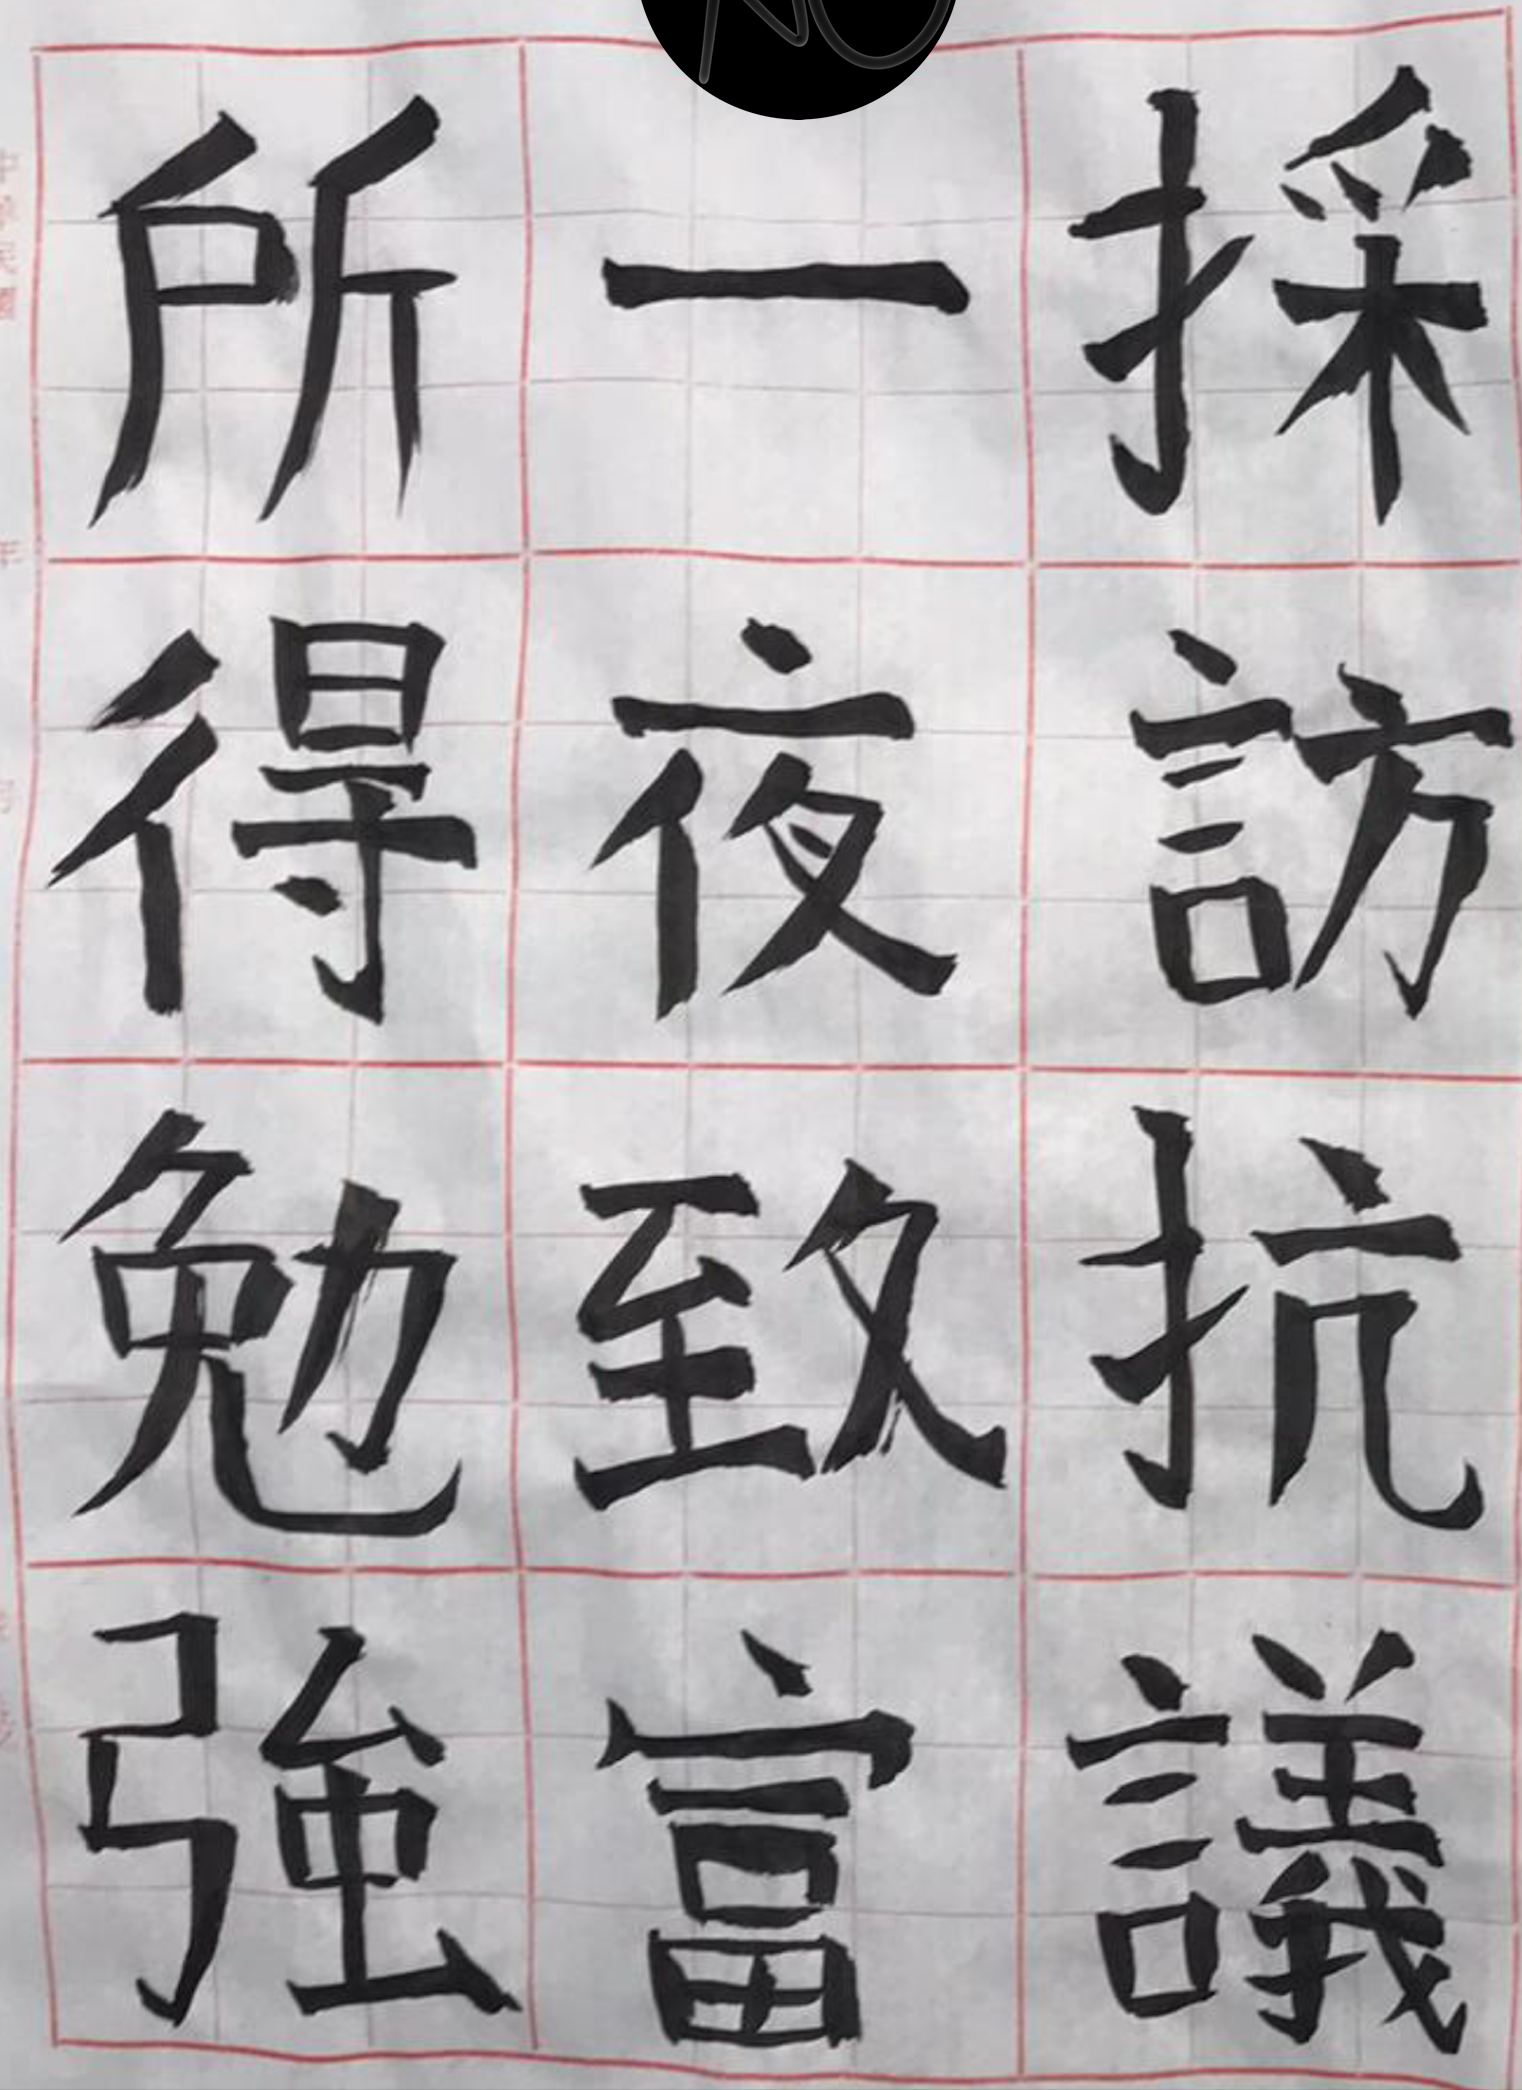 採訪抗議
一夜致富
所得勉強